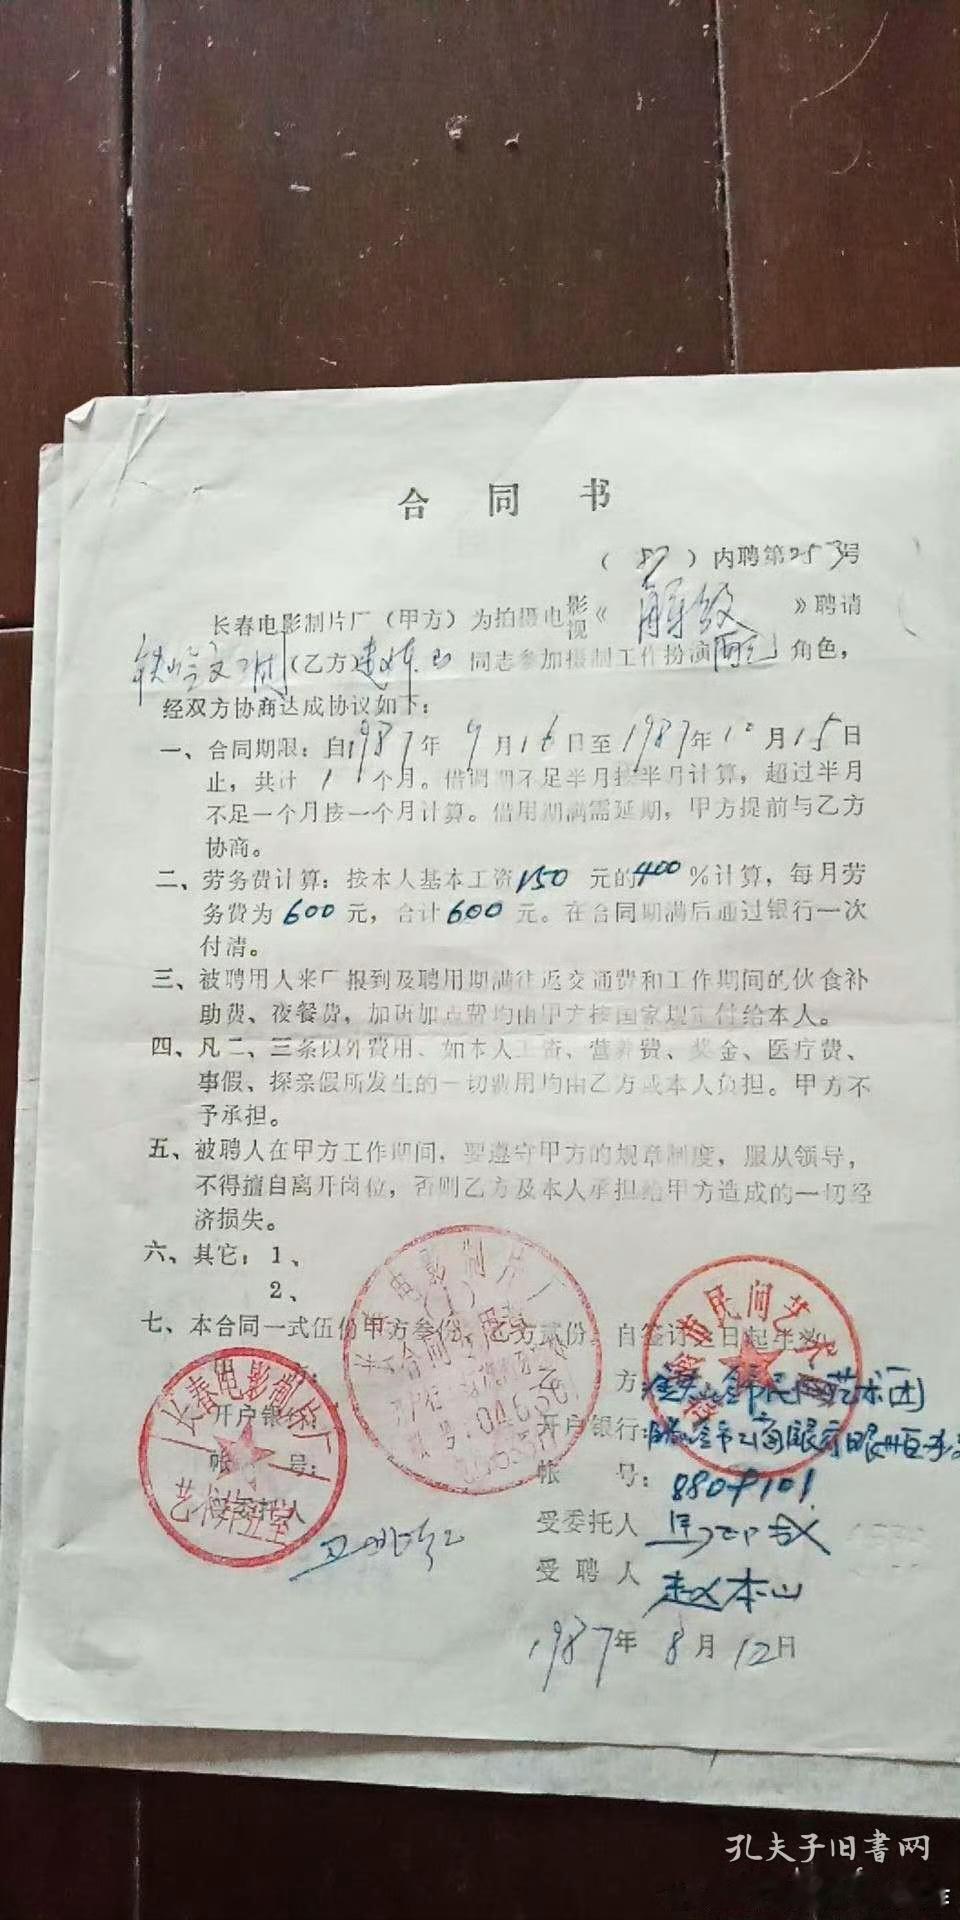 合同书
(87)内聘第253号
长春电影制片厂(甲方)为拍摄电影视《解救》聘请
铁岭文工团(乙方)赵本山同志参加摄制工作扮演角色,
经双方协商达成协议如下:
一、合同期限:自1987年9月16日至1987年10月15日
止,共计1个月。借调期不足半月按半月计算,超过半月
不足一个月按一个月计算。借用期满需延期,甲方提前与乙方
协商。
二、劳务费计算:按本人基本工资150元的400%计算,每月劳
务费为600元,合计600元。在合同期满后通过银行一次
付清。
三、被聘用人来厂报到及聘用期满往返交通费和工作期间的伙食补
助费、夜餐费,加班加点费均由甲方按国家规定付给本人。
四、凡二、三条以外费用、如本人工资、营养费、奖金、医疗费、
事假、探亲假所发生的一切费用均由乙方或本人负担。甲方不
予承担。
五、被聘人在甲方工作期间,要遵守甲方的规章制度,服从领导,
不得擅自离开岗位,否则乙方及本人承担给甲方造成的一切经
济损失。
六、其它:1、
2、
七、本合同一式伍份甲方叁份,乙方贰份。自签订之日起生效
方:铁岭市民间艺术团
开户银行:
开户银行:铁岭市工商银行银州区办
帐号:
帐号:8809101
受委托人
受委托人
受聘人 赵本山
1987年8月12日
长春电影制片厂
市民间艺术
电影制片厂
合同专用章
孔夫子旧书网